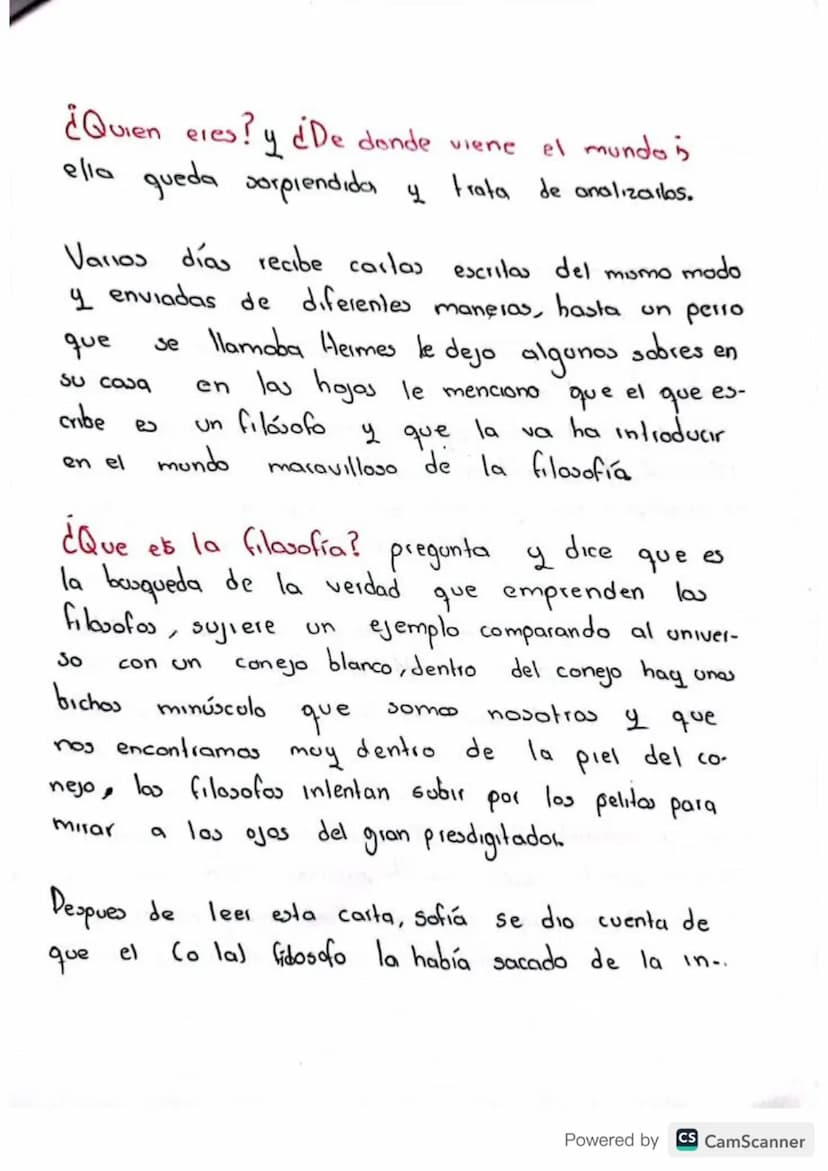 ¿Quien eres? y ¿De donde viene el mundo?
ella queda sorprendida y trata de analizarlos.
Varios días recibe cartas escritas del mismo modo
y enviadas de diferentes maneras, hasta un perro
que se llamaba Hermes le dejo algunos sobres en
su casa en las hojas le menciono que el que es-
cribe es un filósofo y que la va ha introducir
en el mundo maravilloso de la filosofía
¿Que es la filosofía? pregunta y dice que es
la busqueda de la verdad que emprenden los
filosofos, sujiere un ejemplo comparando al univer-
so con un conejo blanco, dentro del conejo hay unos
bichos minúsculo que somos nosotros y que
nos encontramos muy dentro de la piel del co-
nejo, los filosofos intentan subir por los pelitos para
mirar a los ojos del gran presdigitador.
Despues de leer esta carta, sofía se dio cuenta de
que el (o la) filosofo la había sacado de la in-..
Powered by CS CamScanner